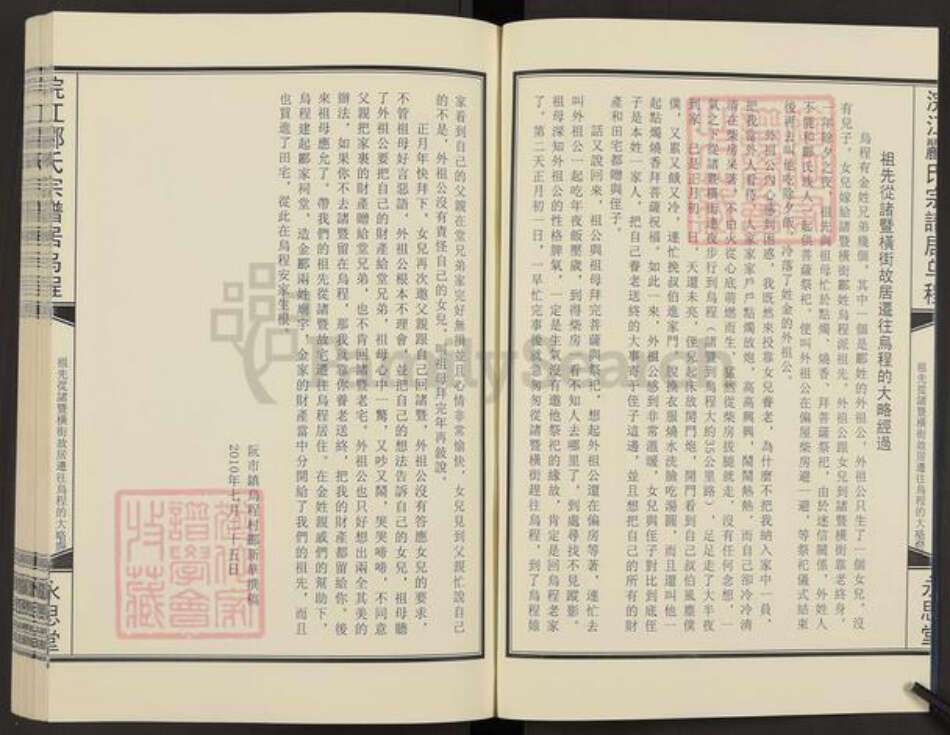 祖先從諸暨橫街故居遷往烏程的大略經過
烏程有金姓兄弟幾個，其中一個是酈姓的外祖公，外祖公只生了一個女兒，沒
有兒子。女兒嫁給諸暨橫街酈姓烏程派祖先。外祖公跟女兒到諸暨橫街靠老終身。
一年除夕之夜，祖先與祖母忙於點燭、燒香、拜菩薩祭祀，由於迷信關係，外姓人
不能和酈氏族人一起供菩薩祭祀，便叫外祖公在偏屋柴房避一避，等祭祀儀式結束
後再去叫他吃除夕飯，冷落了姓金的外祖公。
外祖公內心感到困惑，我既然來投靠女兒養老，為什麼不把我納入家中一員，
將我當作外人看待。人家家家戶戶點燭放炮，高高興興，鬧鬧熱熱，而自己卻冷冷清
清在柴房呆著，不由火從心底萌燃而生，猛然從柴房拔腿就走，沒有任何念想，一
氣之下從諸暨橫街連夜步行到烏程（諸暨到烏程大約35公里路），足足走了大半夜
到家，已是正月初一日，天還未亮，侄兒起床放開門炮，開門看到自己叔伯風塵僕
僕，又累又餓又冷，連忙挽叔伯進家門，脫換衣服燒水洗臉吃湯圓，而且還叫他一
起點燭燒香拜菩薩祝福。如此一來，外祖公感到非常溫暖，女兒與侄子對比到底侄
子是本姓一家人，把自己養老送終的大事寄于侄子這邊，並且想把自己的所有的財
產和田宅都贈與侄子。
話又說回來，祖公與祖母拜完菩薩與祭祀，想起外祖公還在偏房等著，連忙去
叫外祖公一起吃年夜飯壓歲，到得柴房，看不知人去哪里了，到處尋找不見蹤影。
祖母深知外祖公的性格脾氣，一定是生氣沒有邀他祭祀的緣故，肯定是回烏程老家
了。第二天正月初一日，一早忙完事後就急匆匆從諸暨橫街趕往烏程，到了烏程娘
家看到自己的父親在堂兄弟家完好無損並且心情非常愉快，女兒見到父親忙說自己
的不是，外祖公沒有責怪自己的女兒，待祖母拜完年再敘說。
正月年快拜下，女兒再次邀父親跟自己回諸暨，外祖公沒有答應女兒的要求，
不管祖母好言惡語，外祖公根本不理會，並把自己的想法告訴自己的女兒，祖母聽
了外祖公要把自己的財產給堂兄弟，祖母心中一驚，又吵又鬧，哭哭啼啼，不同意
父親把家裏的財產贈給堂兄弟，也不肯回諸暨老宅。外祖公也只好想出兩全其美的
辦法，如果你不去諸暨留在烏程，那我就靠你養老送終，把我的財產都留給你。後
來祖母應允了，帶我們的祖先從諸暨故宅遷往烏程居住。在金姓親戚們的幫助下，
烏程建起酈家祠堂，造金酈兩姓廟宇，金家的財產當中分開給了我們的祖先，而且
也買進了田宅，從此在烏程安家生根。
阮市鎮烏程村酈新華撰稿
2010年七月二十五日
浣江酈氏宗譜居烏程
祖先從諸暨橫街故居遷往烏程的大略
永思堂
浣江酈氏宗譜居烏程
祖先從諸暨橫街故居遷往烏程的大略
永思堂
譜學會
收藏
FamilySearch